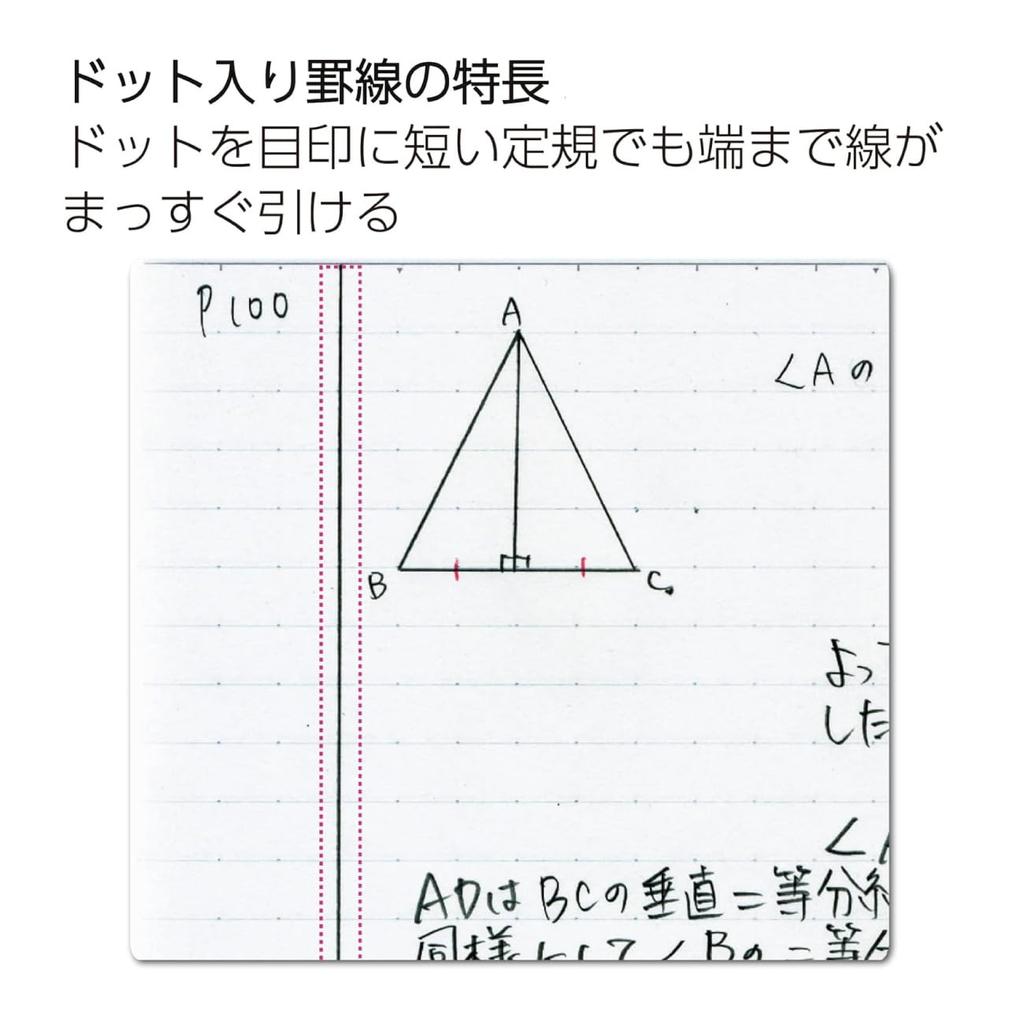 ドット入り罫線の特長
ドットを目印に短い定規でも端まで線が
まっすぐ引ける
P100
A
∠Aの
B
C
よって
した
∠A
ADはBCの垂直=等分
同様にして∠Bの二等分